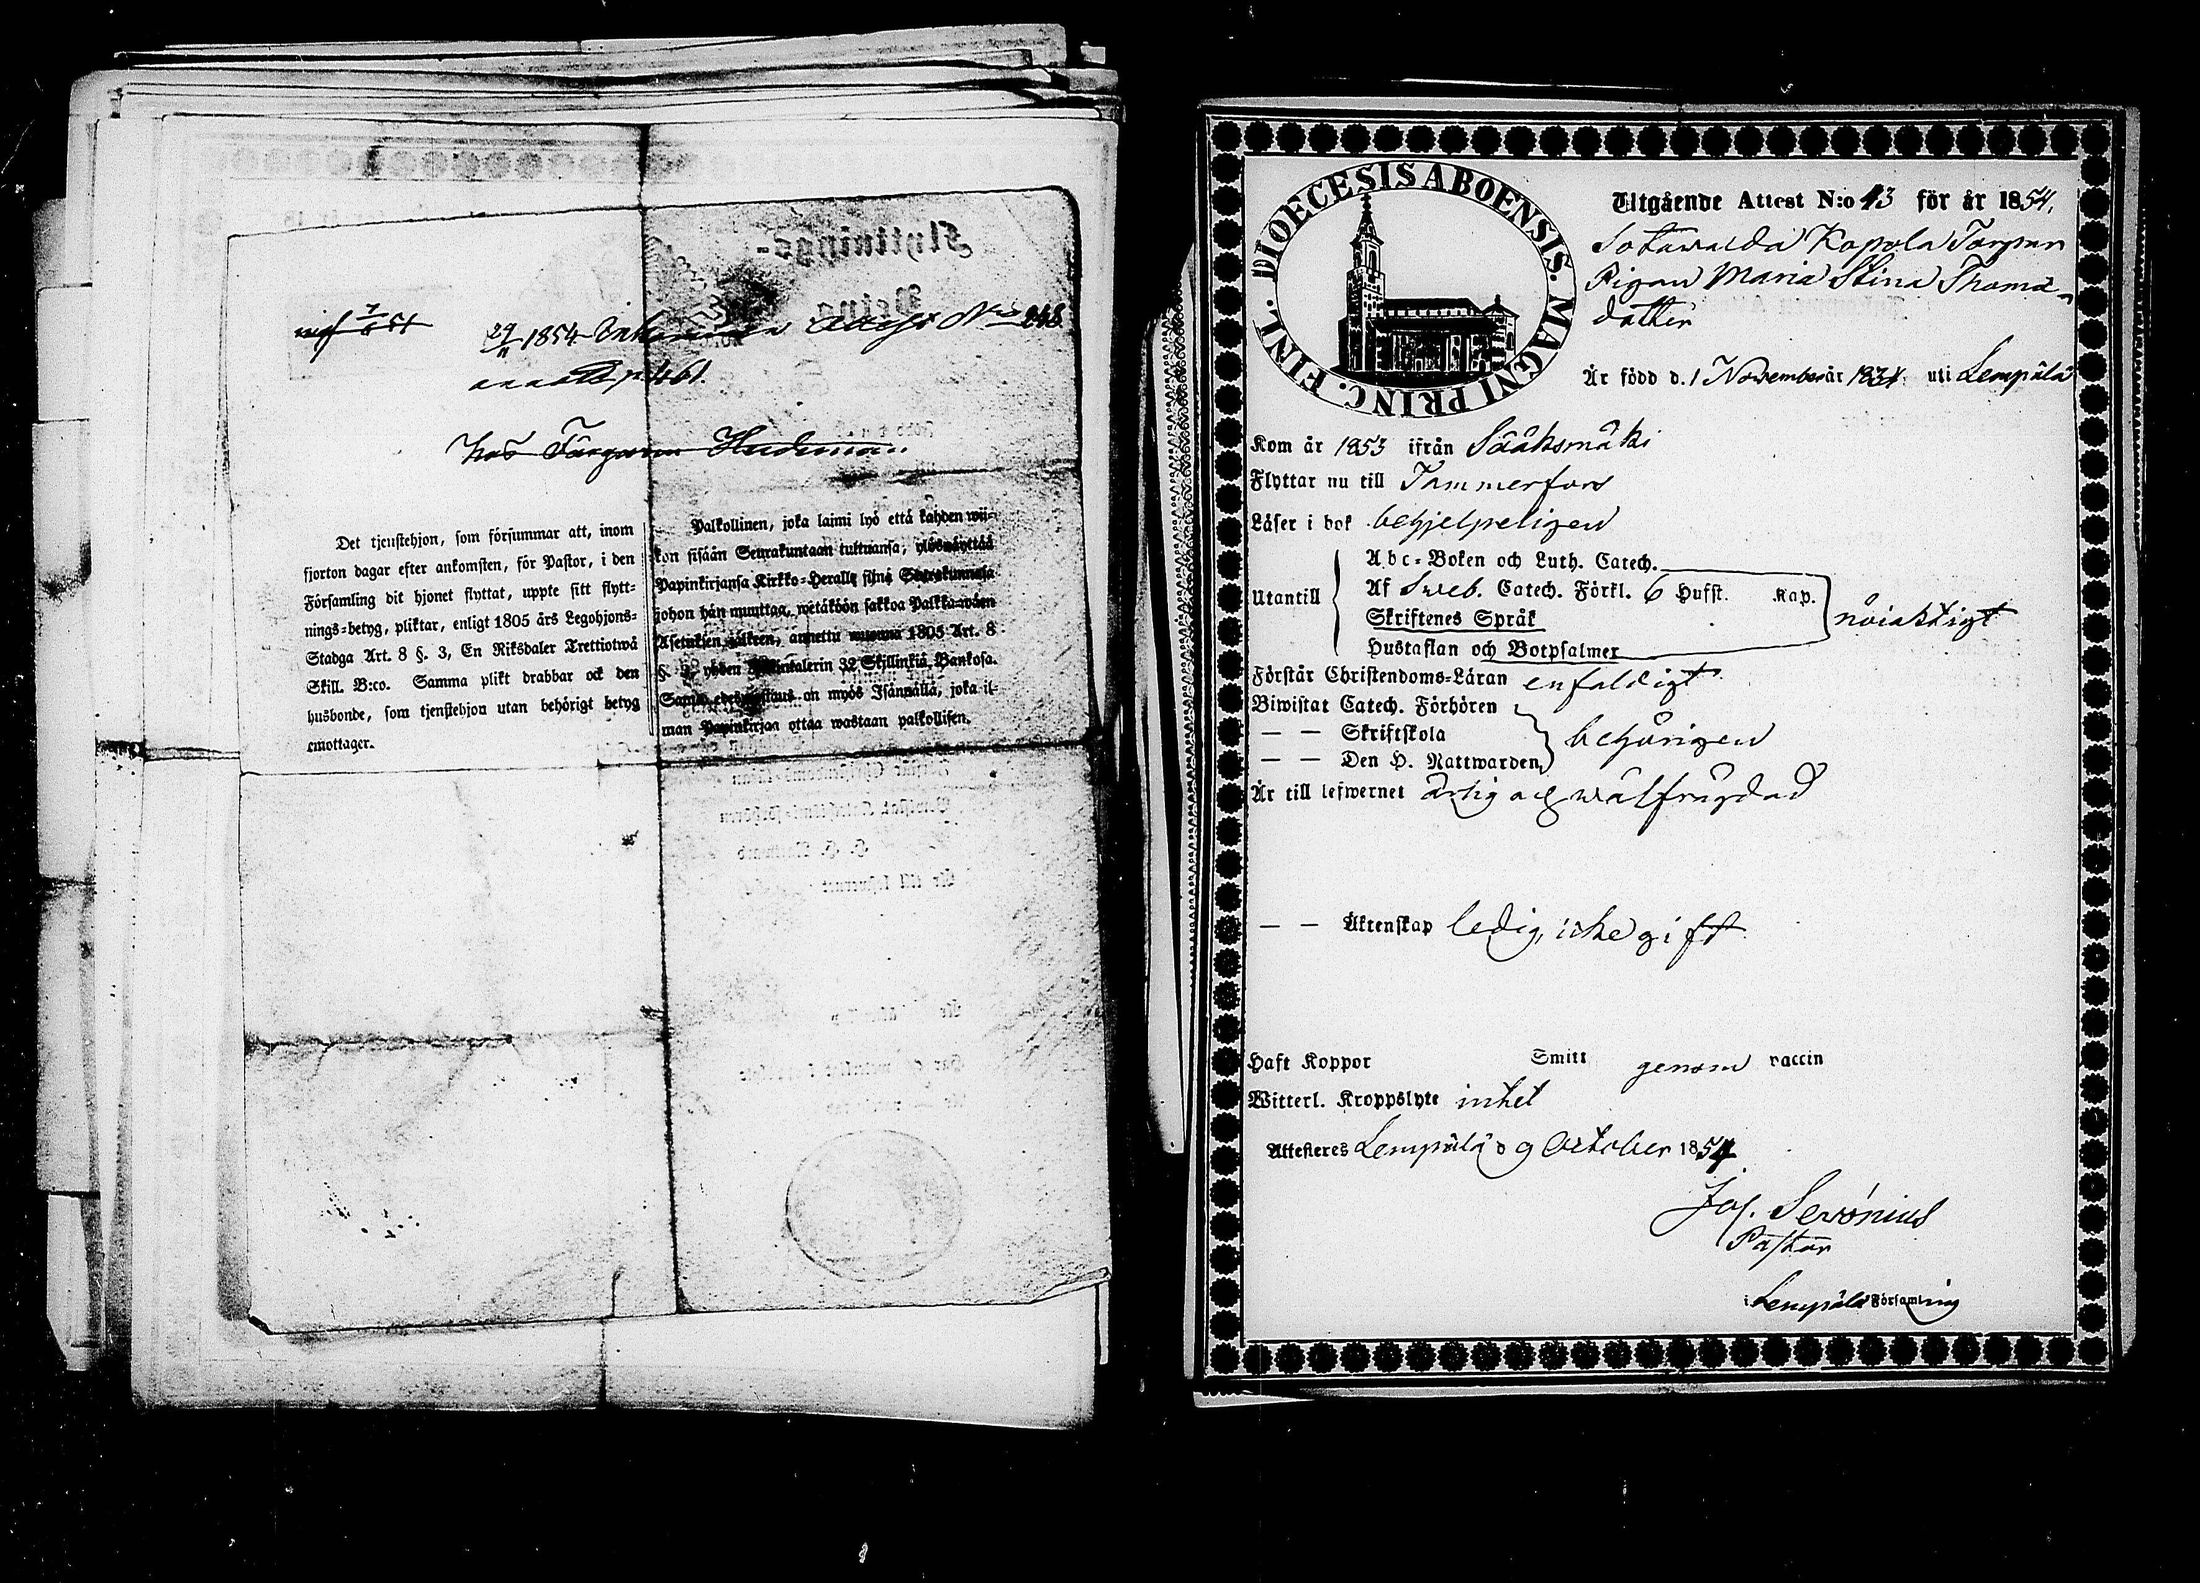 Flyttnings-
Betyg
29/11 1854 Attest No 248
p. 461.
hos Färgaren
Det tjenstehjon, som försummar att, inom
fjorton dagar efter ankomsten, för Pastor, i den
Församling dit hjonet flyttat, uppte sitt flytt-
nings-betyg, pliktar, enligt 1805 års Legohjons-
Stadga Art. 8 §. 3, En Riksdaler Trettiotwå
Skill. B:co. Samma plikt drabbar ock den
husbonde, som tjenstehjon utan behörigt betyg
emottager.
Palkollinen, joka laimi lyö että kahden wii-
kon sisään Seurakuntaan tultuansa, ylösnäyttää
Papinkirjansa Kirkko-Heralle siinä Seurakunnasa
johon hän muuttaa, wetäköön sakkoa Palkka-wäen
Asetuksen jälkeen, annettu wuonna 1805 Art. 8
§. 3, yhden Riksintalerin 32 Skillinkiä Bankosa.
Sama edeswastaus on myös Isännällä, joka il-
man Papinkirjaa ottaa wastaan palkollisen.
DIOECESIS ABOENSIS. MAGNI PRINC. FINL.
Utgående Attest N:o 43 för år 1854.
Sotawalda Koppola Torpar
Pigan Maria Stina Thomas
dotter
Är född d. 1 November år 1834. uti Lempälä
Kom år 1853 ifrån Sääksmäki
Flyttar nu till Tammerfors
Läser i bok behjelpeligen
Utantill
Abc-Boken och Luth. Catech.
Af Sweb. Catech. Förkl. 6 Hufst. Kap.
Skriftenes Språk
Hustaflan och Botpsalmer
nöiaktigt
Förstår Christendoms-Läran enfaldigt
Biwistat Catech. Förhören
— — Skriftskola
— — Den H. Nattwarden
behörigen
Är till lefwernet ärlig och wälfrägdad
— — Äktenskap ledig, icke gift
Haft Koppor Smitt genom vaccin
Witterl. Kroppslyte intet
Attesteras Lempälä d 9 October 1854
Jos. Serónius
Pastor
i Lempälä Församling